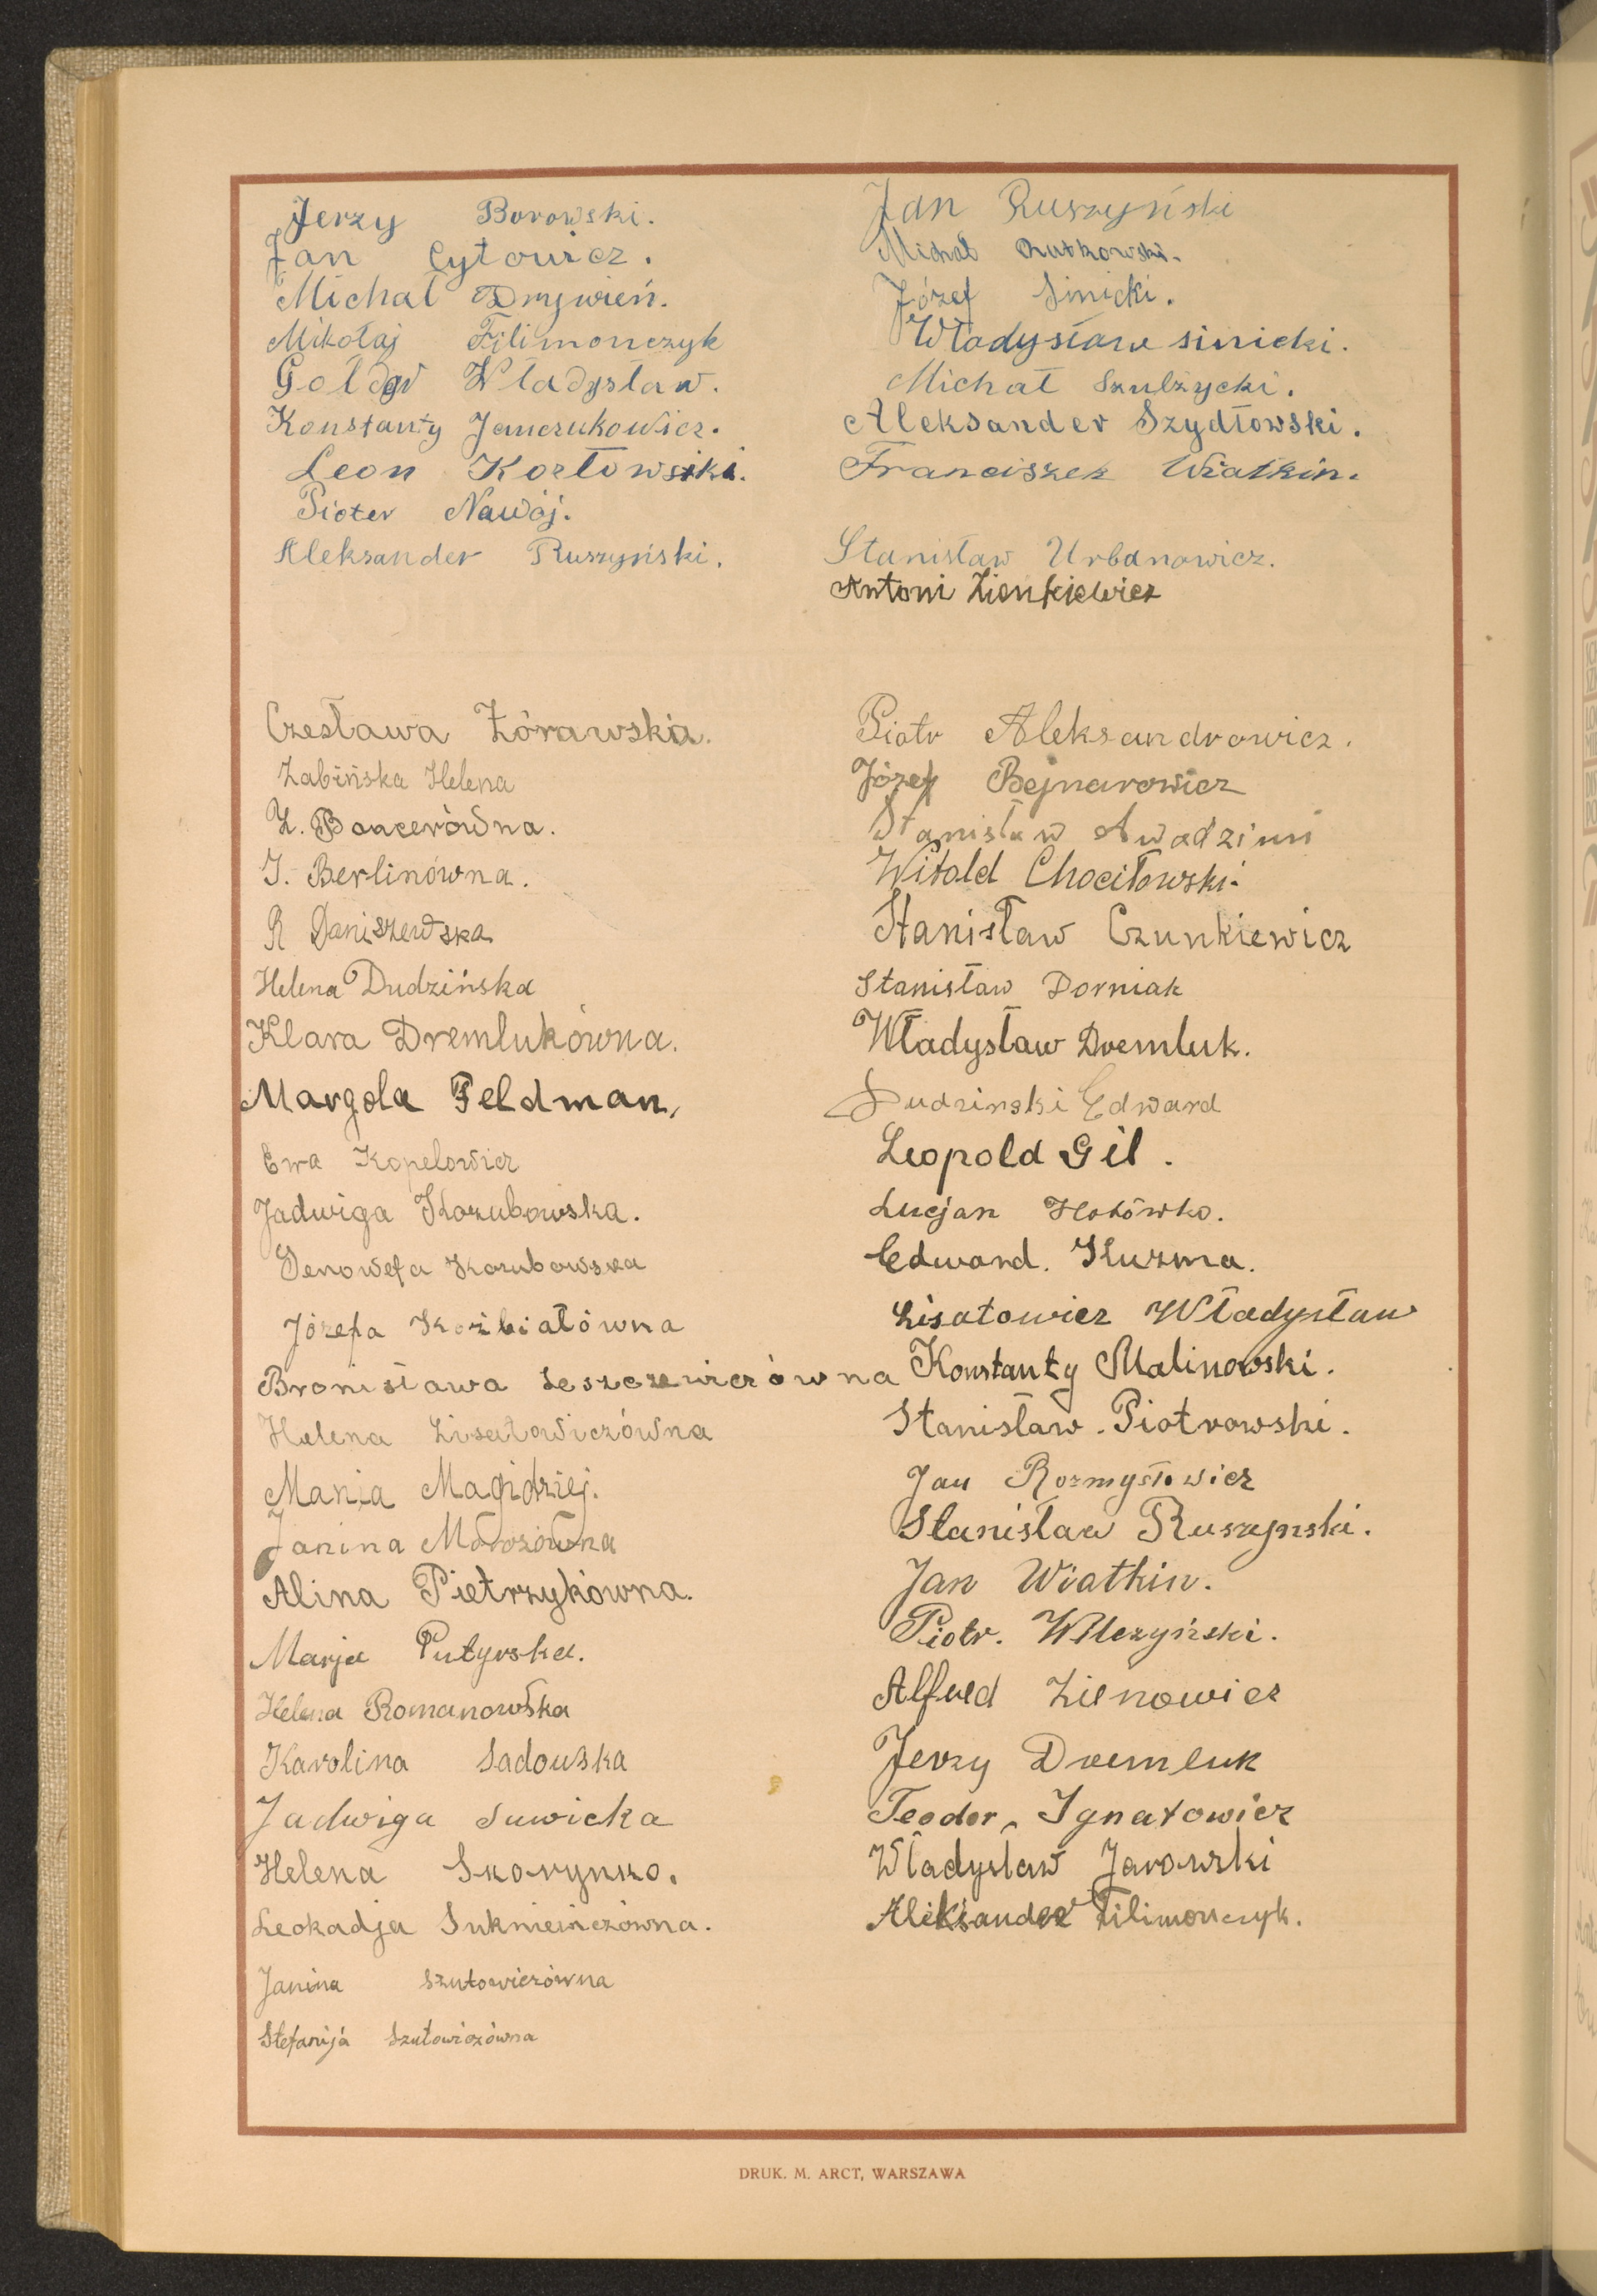 Jerzy Borowski.
Jan Cytowicz.
Michał Drzwień.
Mikołaj Filimonczyk
Gołdow Władysław.
Konstanty Janczukowicz.
Leon Kozłowski.
Pioter Nawój.
Aleksander Ruszyński.
Jan Ruszyński
Michał Rutkowski.
Józef Sinicki.
Władysław sinicki.
Michał Szulżycki.
Aleksander Szydłowski.
Franciszek Wiatkin.
Stanisław Urbanowicz.
Antoni Zienkiewicz
Czesława Żórawska.
Żabińska Helena
Z. Boncerówna.
I. Berlinówna.
R Daniszewska
Helena Dudzińska
Klara Dremlukówna.
Margola Feldman,
Ewa Kopelowicz
Jadwiga Kozubowska.
Genowefa Kozubowska
Józefa Koźbiałówna
Bronisława Leszczewiczówna
Helena Lisatowiczówna
Mania Magidziej.
Janina
Alina Pietrzykówna.
Marja Putyrska.
Helena Romanowska
Karolina Sadowska
Jadwiga Suwicka
Helena Skorynko.
Leokadja Sukniewiczówna.
Janina Szutowiczówna
Stefanija Szutowiczówna
Piotr Aleksandrowicz.
Józef Bejnarowicz
Stanisław Awadzimi
Witold Chociłowski.
Stanisław Czunkiewicz
Stanisław Dorniak
Władysław Dremluk.
Dudzinski Edward
Leopold Gil.
Lucjan Hołówko.
Edward. Kuzma.
Lisatowicz Władysław
Konstanty Malinowski.
Stanisław. Piotrowski.
Jan Rozmysłowicz
Stanisław Ruszynski.
Jan Wiatkin.
Piotr. Wilczyński.
Alfred Zienowicz
Jerzy Dremluk
Teodor, Ignatowicz
Władysław Jarowski
Aleksander Filimonczyk.
DRUK. M. ARCT, WARSZAWA